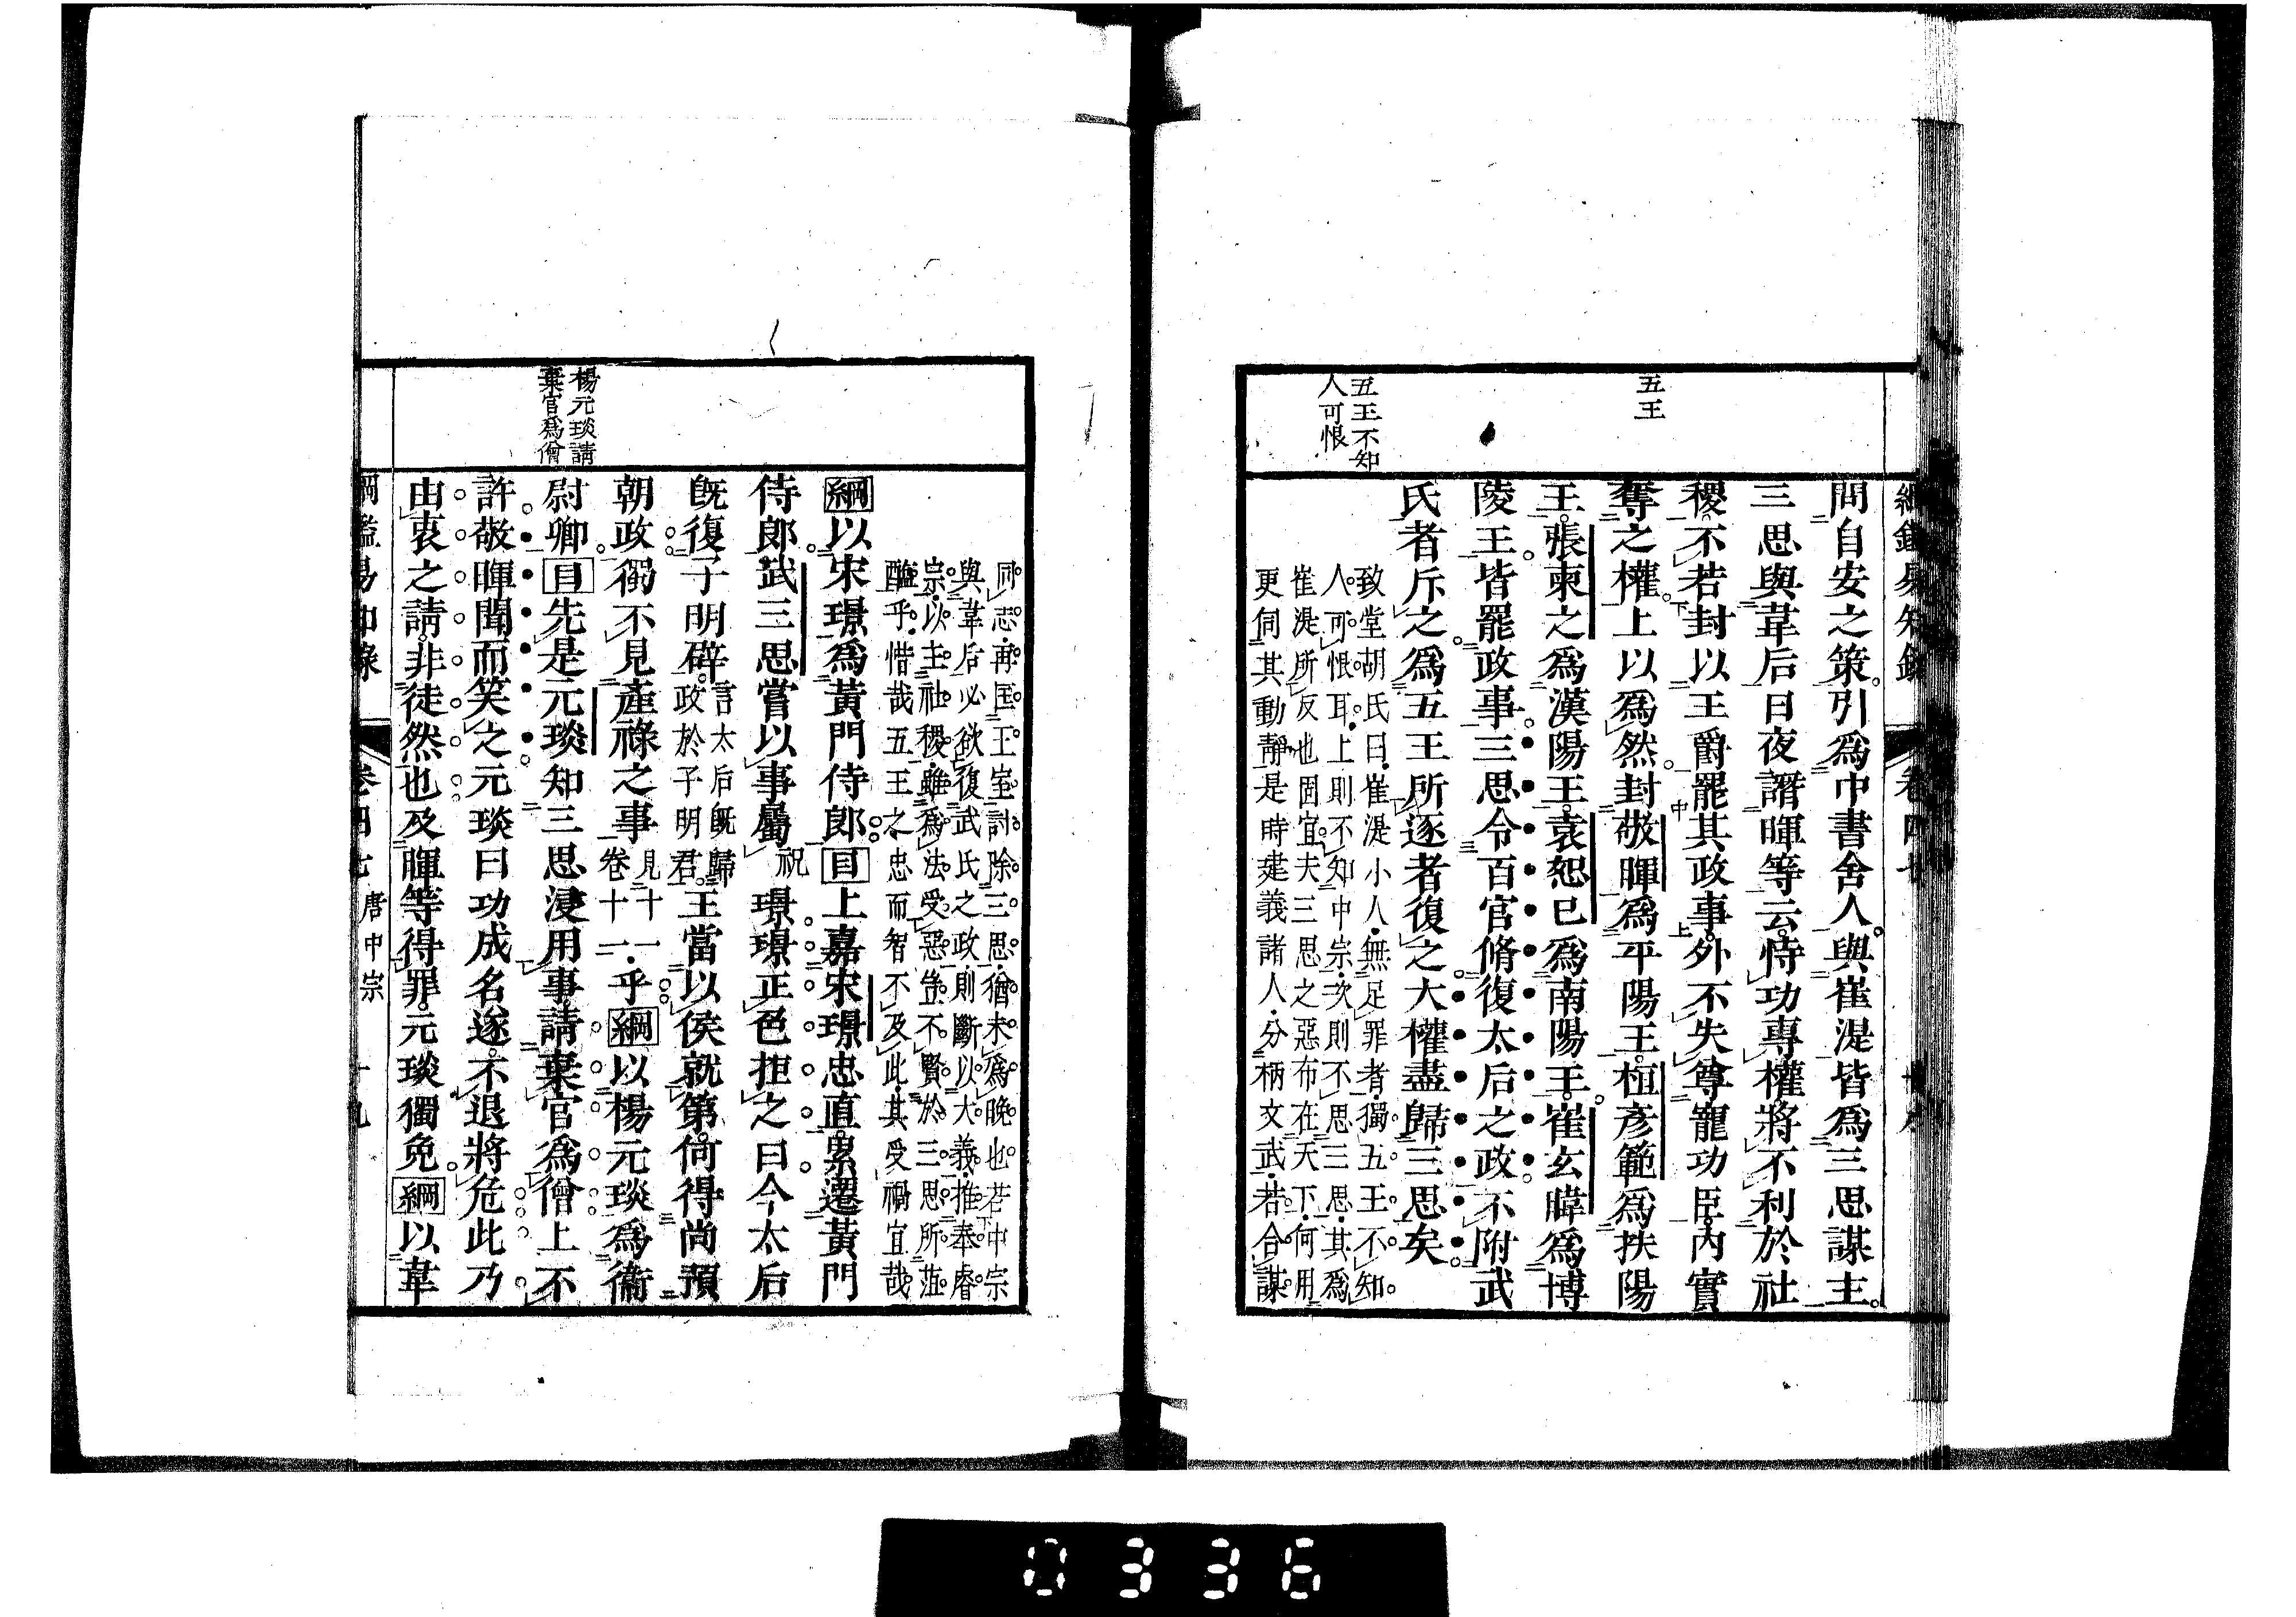 五王
五王不知
人可恨
問自安之策引爲中書舍人與崔湜皆爲三思謀主
三思與韋后日夜譖暉等云恃功專權將不利於社
稷不若封以王爵罷其政事外不失尊寵功臣内實
奪之權上以爲然封敬暉爲平陽王桓彥範爲扶陽
王張柬之爲漢陽王袁恕已爲南陽王崔玄暐爲博
陵王皆罷政事三思令百官脩復太后之政不附武
氏者斥之爲五王所逐者復之大權盡歸三思矣
致堂胡氏曰崔湜小人無足罪者獨五王不知
人可恨耳上則不知中宗次則不思三思其爲
崔湜所反也固宜夫三思之惡布在天下何用
更伺其動靜是時建義諸人分柄文武若合謀
楊元琰請
棄官爲僧
同志再匡王室討除三思猶未爲晚也若中宗
與韋后必欲復武氏之政則斷以大義推奉睿
宗以主社稷雖爲法受惡豈不賢於三思所菹
醢乎惜哉五王之忠而智不及此其受禍宜哉
綱以宋璟爲黃門侍郎目上嘉宋璟忠直累遷黃門
侍郎武三思嘗以事屬祝璟璟正色拒之曰今太后
旣復子明辟言太后旣歸政於子明君王當以侯就第何得尚預
朝政獨不見產祿之事見十一卷十一乎綱以楊元琰爲衞
尉卿目先是元琰知三思浸用事請棄官爲僧上不
許敬暉聞而笑之元琰曰功成名遂不退將危此乃
由衷之請非徒然也及暉等得罪元琰獨免綱以韋
綱鑑易知錄 卷四七 唐中宗 十九